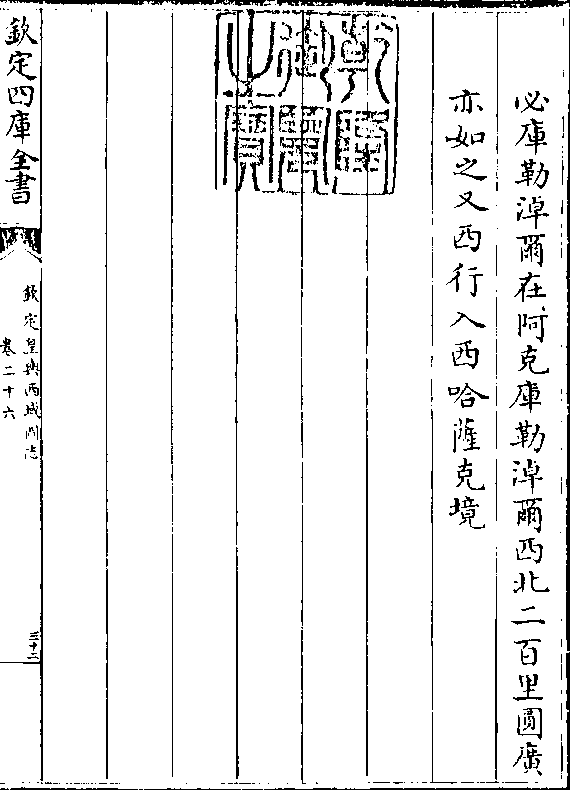 必庫勒淖爾在阿克庫勒淖爾西北二百里圓廣
亦如之又西行入西哈薩克境
乾隆御覽之寶
欽定四庫全書
欽定皇輿西域圖志
卷二十六
三十二